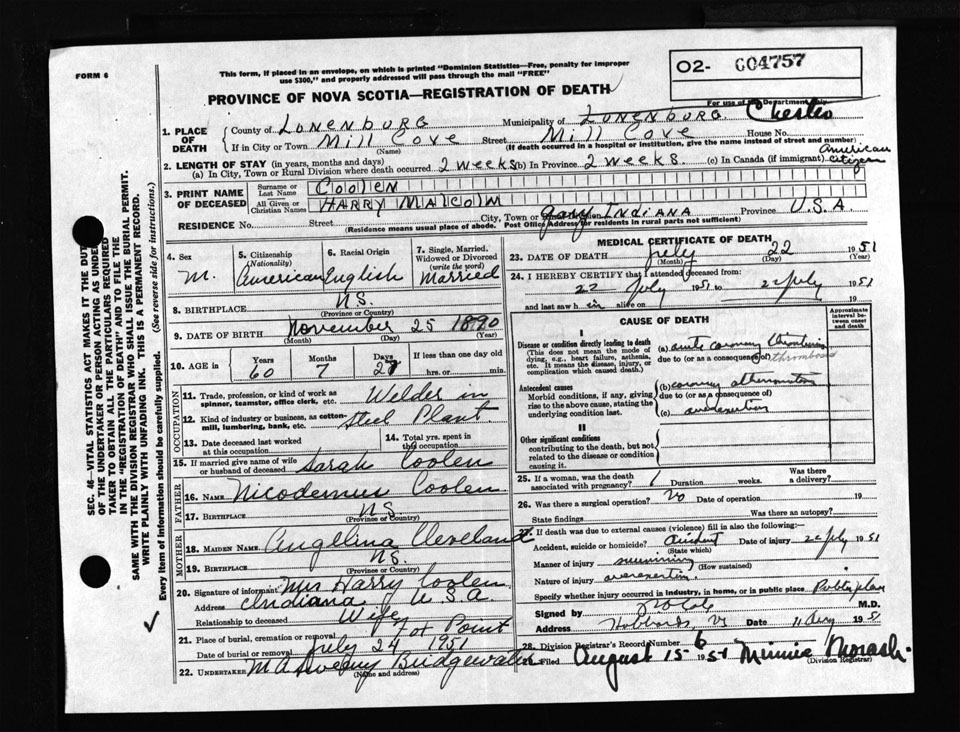 FORM 6
This form, if placed in an envelope, on which is printed "Dominion Statistics—Free, penalty for improper
use $300," and properly addressed will pass through the mail "FREE"
O2- 004757
PROVINCE OF NOVA SCOTIA—REGISTRATION OF DEATH
For use of the Department only
1. PLACE OF DEATH
County of LUNENBURG Municipality of LUNENBURG. Chester
If in City or Town Mill Cove Street Mill Cove House No.
(Name) (If death occurred in a hospital or institution, give the name instead of street and number)
2. LENGTH OF STAY (in years, months and days) American
(a) In City, Town or Rural Division where death occurred 2 weeks (b) In Province 2 weeks. (c) In Canada (if immigrant) citizen
3. PRINT NAME OF DECEASED
Surname or Last Name COOLEN
All Given or Christian Names HARRY MALCOLM
RESIDENCE No. Street City, Town or Gary INDIANA Province U.S.A.
(Residence means usual place of abode. Post Office Address for residents in rural parts not sufficient)
4. Sex M.
5. Citizenship (Nationality) American
6. Racial Origin English
7. Single, Married, Widowed or Divorced (write the word) Married
8. BIRTHPLACE N.S.
(Province or Country)
9. DATE OF BIRTH November 25 1890
(Month) (Day) (Year)
10. AGE in Years 60 Months 7 Days 27 If less than one day old hrs. or min.
OCCUPATION
11. Trade, profession, or kind of work as spinner, teamster, office clerk, etc. Welder in
12. Kind of industry or business, as cotton-mill, lumbering, bank, etc. Steel Plant
13. Date deceased last worked at this occupation
14. Total yrs. spent in this occupation
15. If married give name of wife or husband of deceased Sarah Coolen
FATHER
16. NAME Nicodemus Coolen
17. BIRTHPLACE N.S.
(Province or Country)
MOTHER
18. MAIDEN NAME Angelina Cleveland
19. BIRTHPLACE N.S.
(Province or Country)
20. Signature of informant Mrs Harry Coolen
Address Indiana U.S.A.
Relationship to deceased Wife
21. Place of burial, cremation or removal Fox Point
Date of burial or removal July 24 1951
22. UNDERTAKER Bridgewater
(Name and address)
MEDICAL CERTIFICATE OF DEATH
23. DATE OF DEATH July 22 1951
(Month) (Day) (Year)
24. I HEREBY CERTIFY that I attended deceased from:
22 July 1951 to 22 July 1951
and last saw h im alive on 19
CAUSE OF DEATH
Approximate interval between onset and death
I
Disease or condition directly leading to death (a) acute coronary thrombosis
(This does not mean the mode of dying, e.g., heart failure, asthenia, etc. It means the disease, injury, or complication which caused death.)
due to (or as a consequence of)
Antecedent causes (b) coronary
Morbid conditions, if any, giving rise to the above cause, stating the underlying condition last.
due to (or as a consequence of)
(c) overexertion
II
Other significant conditions
contributing to the death, but not related to the disease or condition causing it.
25. If a woman, was the death associated with pregnancy? Duration weeks. Was there a delivery?
26. Was there a surgical operation? no Date of operation 19
State findings Was there an autopsy?
27. If death was due to external causes (violence) fill in also the following:—
Accident, suicide or homicide? accident Date of injury 22 July 1951
(State which)
Manner of injury swimming
(How sustained)
Nature of injury overexertion.
Specify whether injury occurred in industry, in home, or in public place Public place
Signed by M.D.
Address Hubbards, NS Date 11 Aug 1951
28. Division Registrar's Record Number 6
Filed August 15 1951 Minnie Morash.
(Division Registrar)
SEC. 46—VITAL STATISTICS ACT MAKES IT THE DUTY
OF THE UNDERTAKER OR PERSON ACTING AS UNDER-
TAKER TO OBTAIN ALL THE PARTICULARS REQUIRED
IN THE "REGISTRATION OF DEATH" AND TO FILE THE
SAME WITH THE DIVISION REGISTRAR WHO SHALL ISSUE THE BURIAL PERMIT.
WRITE PLAINLY WITH UNFADING INK. THIS IS A PERMANENT RECORD.
Every item of information should be carefully supplied. (See reverse side for instructions.)